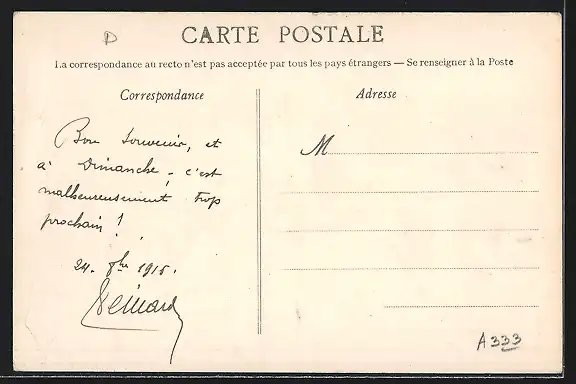 D
CARTE POSTALE
La correspondance au recto n'est pas acceptée par tous les pays étrangers — Se renseigner à la Poste
Correspondance
Adresse
Bon Souvenir, et
à Dimanche, c'est
malheureusement trop
prochain !
24. 1915.
M
A333